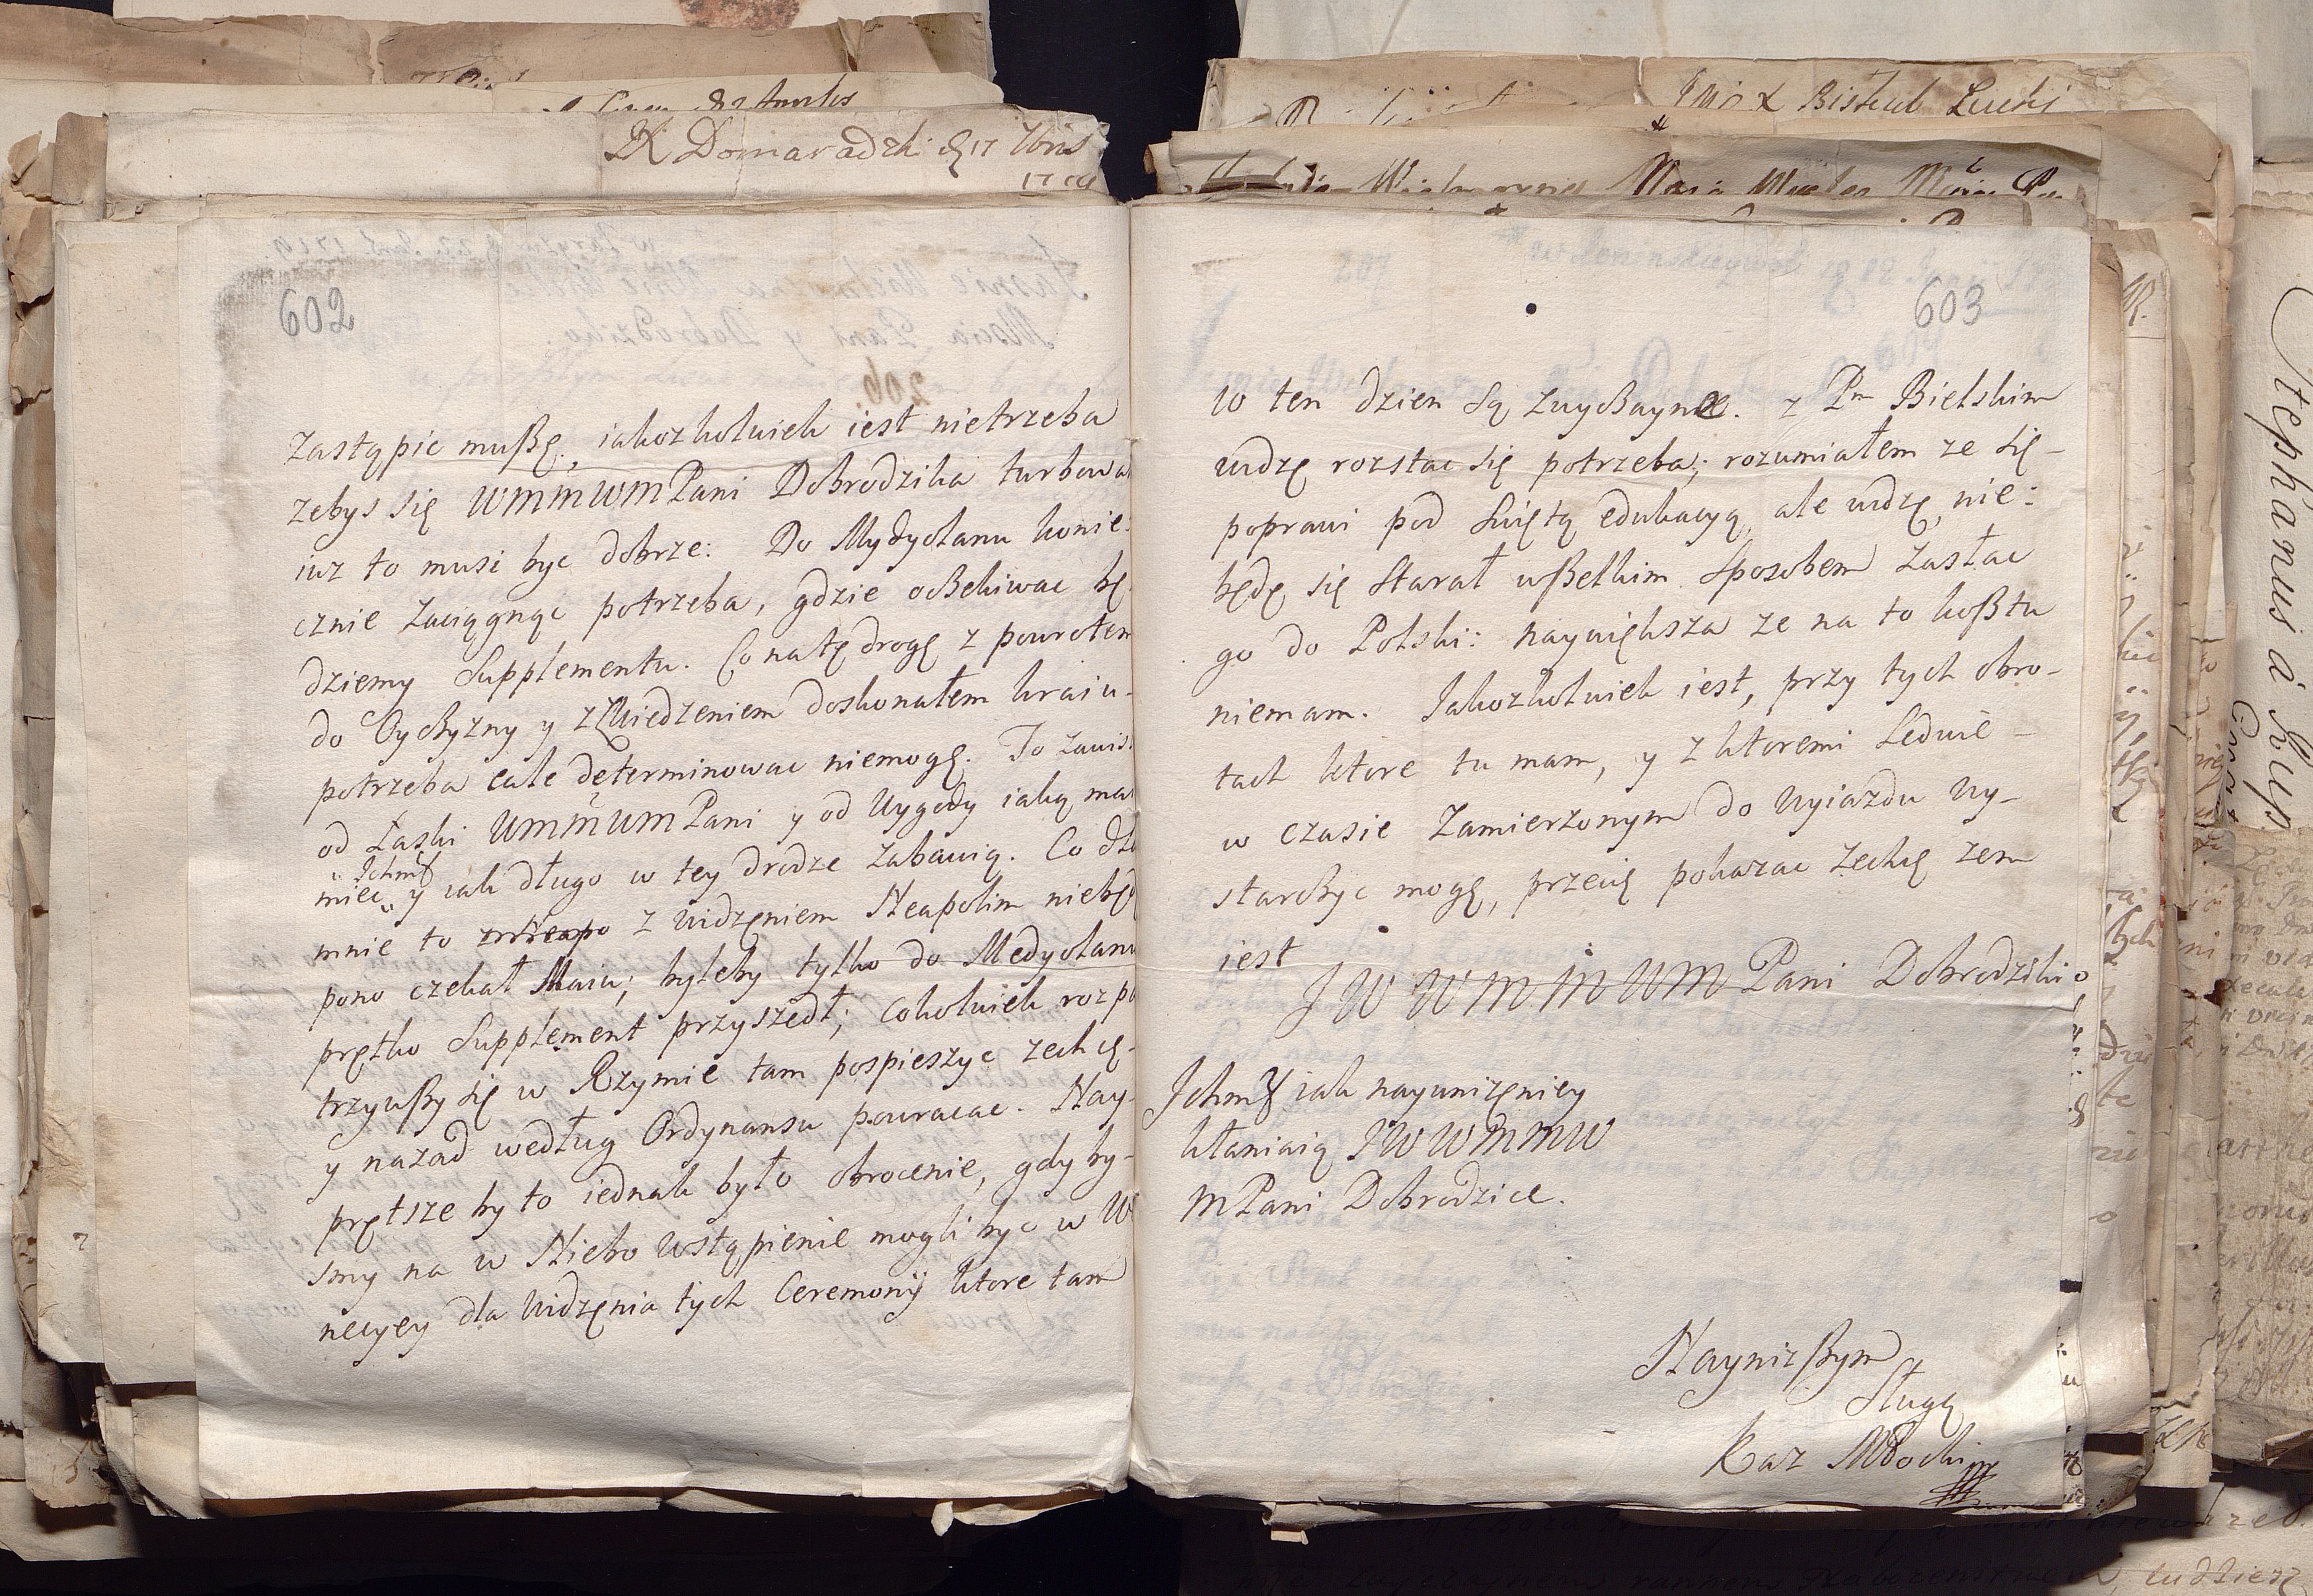 JK Domaradzki
602
zastąpic muszę, iakozkolwiek iest nietrzeba
zebys się WMMWMPani Dobrodzika turbowa
iuz to musi byc dobrze: Do Mydyolanu konie:
cznie zaciągnąc potrzeba, gdzie oczekiwac bę
dziemy Supplementu. Co na tę drogę z powrotem
do Oyczyzny y z Zwiedzeniem doskonałem kraiu
potrzeba cale determinowac niemogę. To zawis:
od Łaski WMMWMPani y od Wygody iaką ma
Ichm
miec y iak długo w tey drodze zabawią. Co dla
mnie to z widzeniem Neapolim niebęd
pono czekał Maiu; byleby tylko do Medyolanu
prętko Supplement przyszedł; cokolwiek rozpa
trzywszy się w Rzymie tam pospieszyc zechcę
y nazad według Ordynansu powracac. Nay-
prętsze by to iednak było obrocenie, gdyby-
smy na w Niebo Wstąpienie mogli byc w We
necyey dla Widzenia tych Ceremonij ktore tam
603
w ten dzien są zwyczayne. z Pm Bielskim
widzę rozstac się potrzeba; rozumiałem ze się
poprawi pod Swiętą edukacyą, ale widzę, nie:
będę się starał wszelkim Sposobem zasłac
go do Polski: naywiększa ze na to kosztu
niemam. Jakozkolwiek iest, przy tych obro-
tach ktore tu mam, y z ktoremi Ledwie
w czasie Zamierzonym do Wyiazdu wy-
starczyc mogę, przecię pokazac zechcę zem
iest
JWWMMWMPani Dobrodziki
Ichm iak nayunizeniey
kłaniaią JWWMMW
MPani Dobrodzice.
Nayniszym
Sługą
Kaz Młocki
Stephanus à Rup